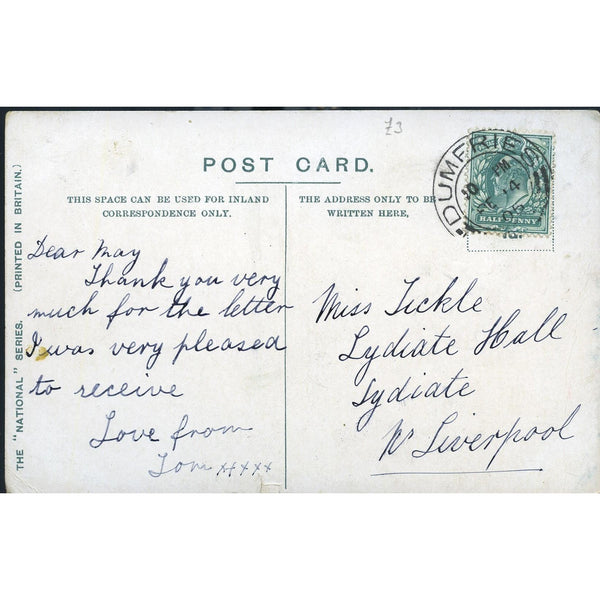 £3
POST CARD.
THIS SPACE CAN BE USED FOR INLAND
CORRESPONDENCE ONLY.
THE ADDRESS ONLY TO BE
WRITTEN HERE,
THE "NATIONAL" SERIES. (PRINTED IN BRITAIN.)
DUMFRIES
PM
HALFPENNY
Dear May
Thank you very
much for the letter
I was very pleased
to receive
Love from
Tom xxxxx
Miss Tickle
Lydiate Hall
Lydiate
Nr Liverpool